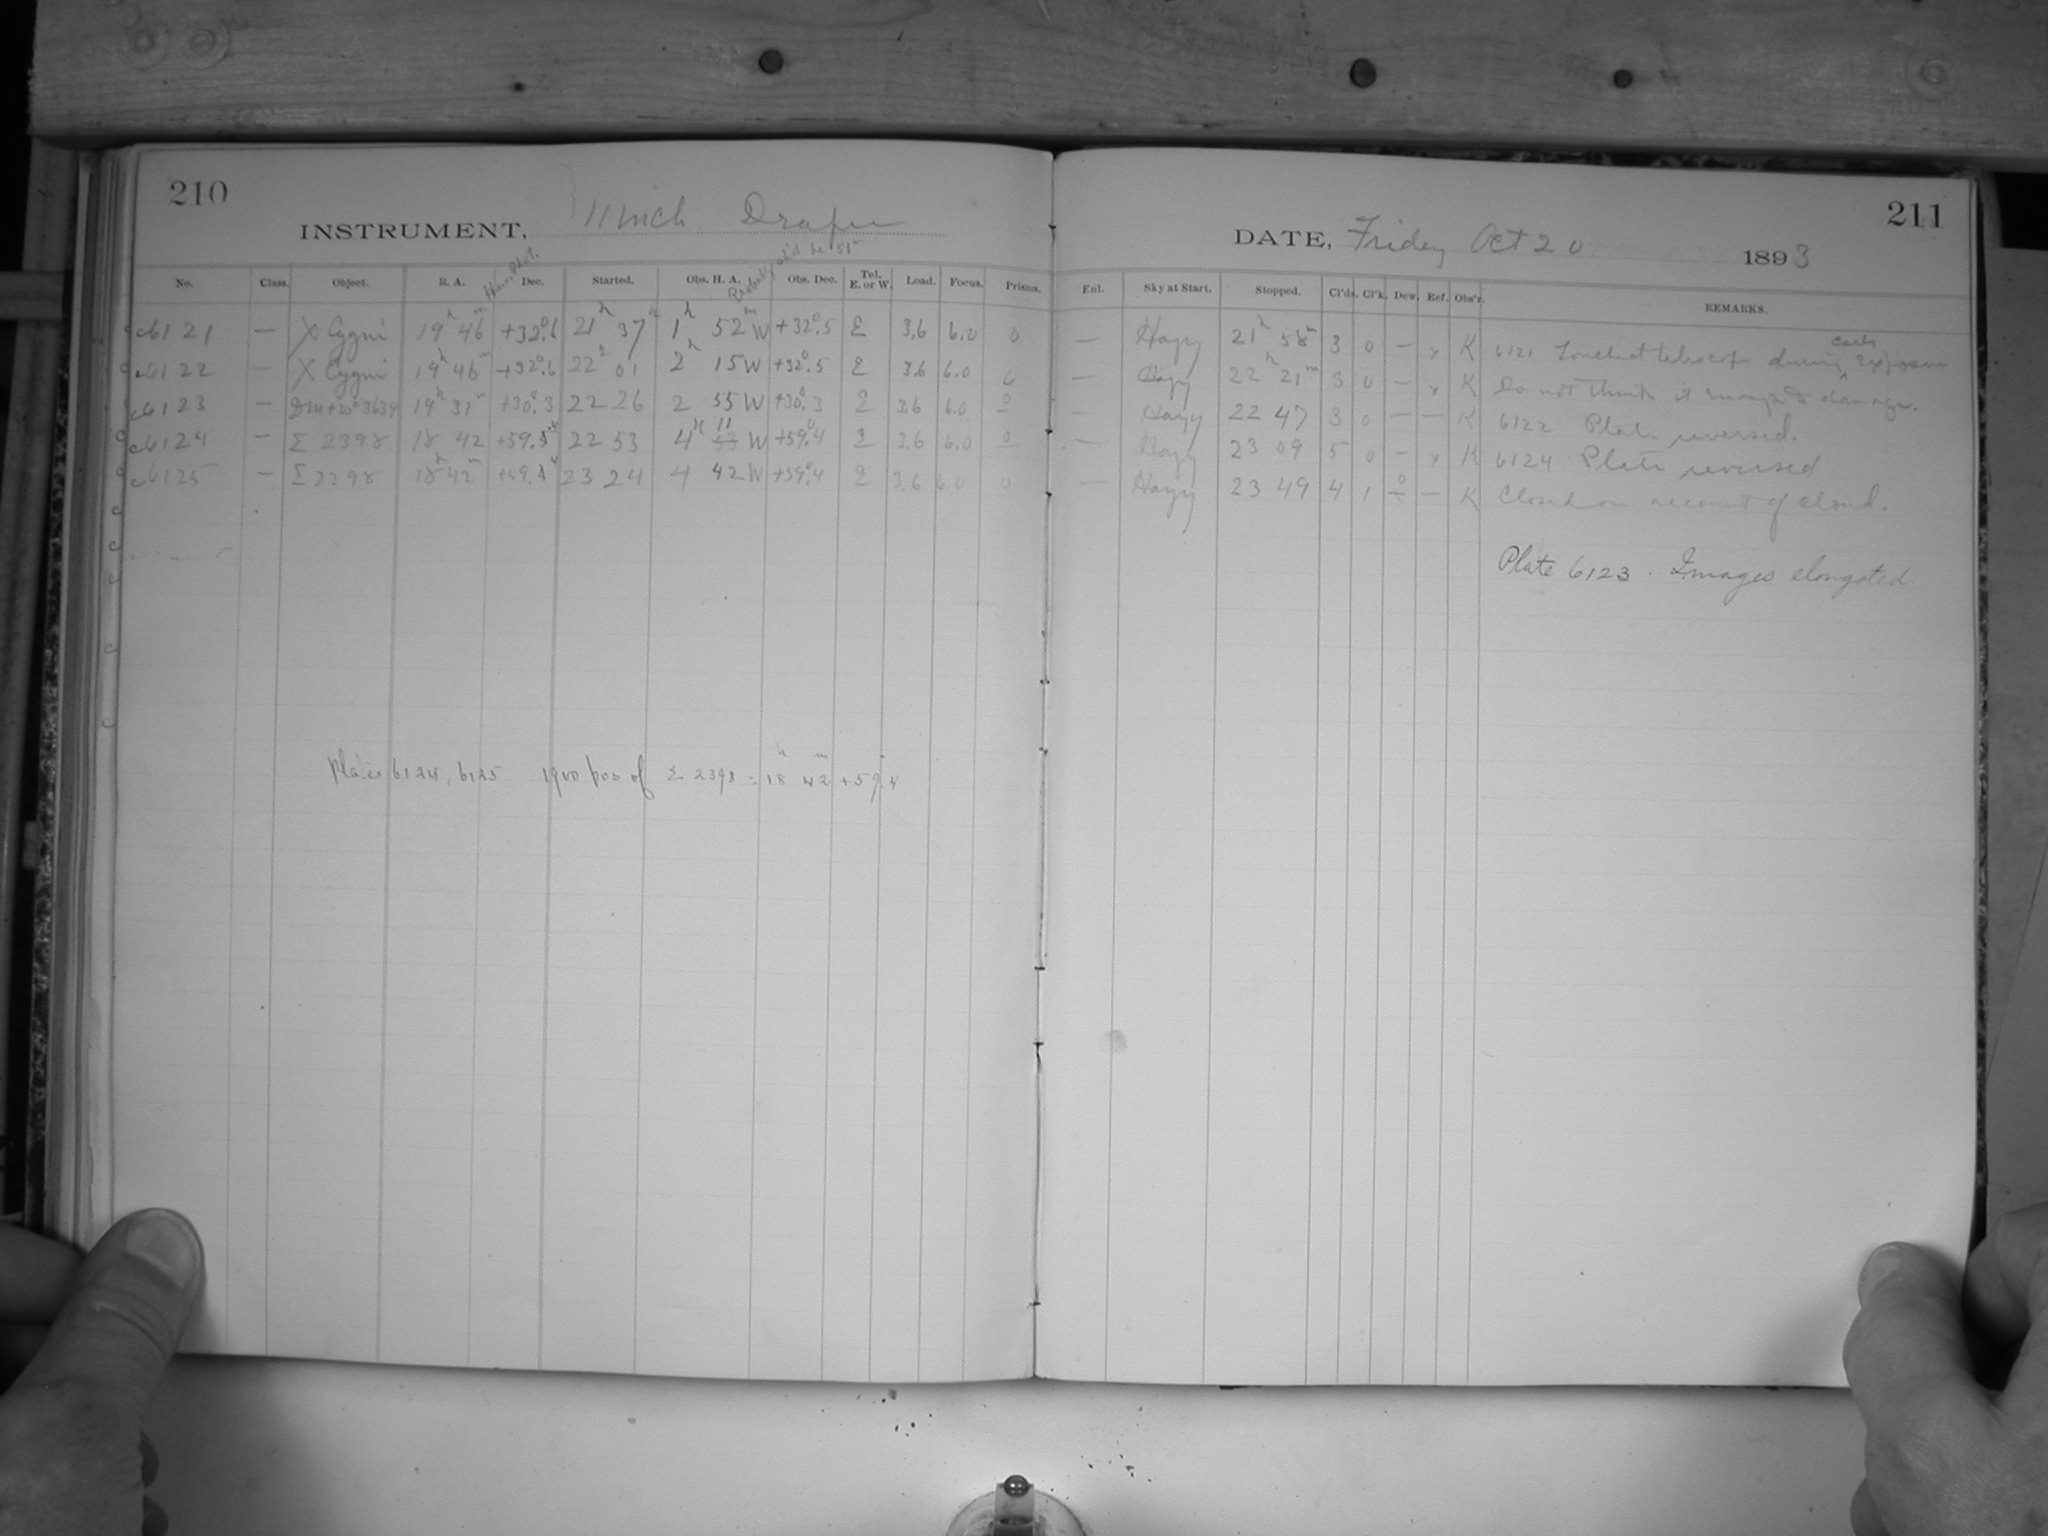 210
INSTRUMENT, 11 inch Draper
Harv. Phot. Probably sh'd be 51
No. Class. Object. R. A. Dec. Started. Obs. H. A. Obs. Dec. Tel. E. or W. Load. Focus. Prisms.
c6121 — X Cygni 19h 46m +32°.6 21h 37m 1h 52m W +32°.5 E 3.6 6.0 0
c6122 — X Cygni 19h 46m +32°.6 22h 01 2h 15 W +32°.5 E 3.6 6.0 0
c6123 — DM+30°3639 19h 31m +30°.3 22 26 2 55 W +30°.3 E 3.6 6.0 0
c6124 — Σ 2398 18 42 +59.4 22 53 4h 11 W +59°.4 E 3.6 6.0 0
c6125 — Σ 2398 18h 42m +59.4 23 24 4 42 W +59°.4 E 3.6 6.0 0
Plates 6124, 6125 1900 pos of Σ 2398 = 18h 42m +59.4
211
DATE, Friday Oct 20 1893
Enl. Sky at Start. Stopped. Cl'ds. Cl'k. Dew. Ref. Obs'r. REMARKS.
— Hazy 21h 58m 3 0 — x K 6121 Touched telescope during early exposure
— Hazy 22h 21m 3 0 — x K Do not think it enough to damage.
— Hazy 22 47 3 0 — — K 6122 Plate reversed.
— Hazy 23 09 5 0 — x K 6124 Plate reversed
— Hazy 23 49 4 1 0 — K Closed on account of cloud.
Plate 6123. Images elongated